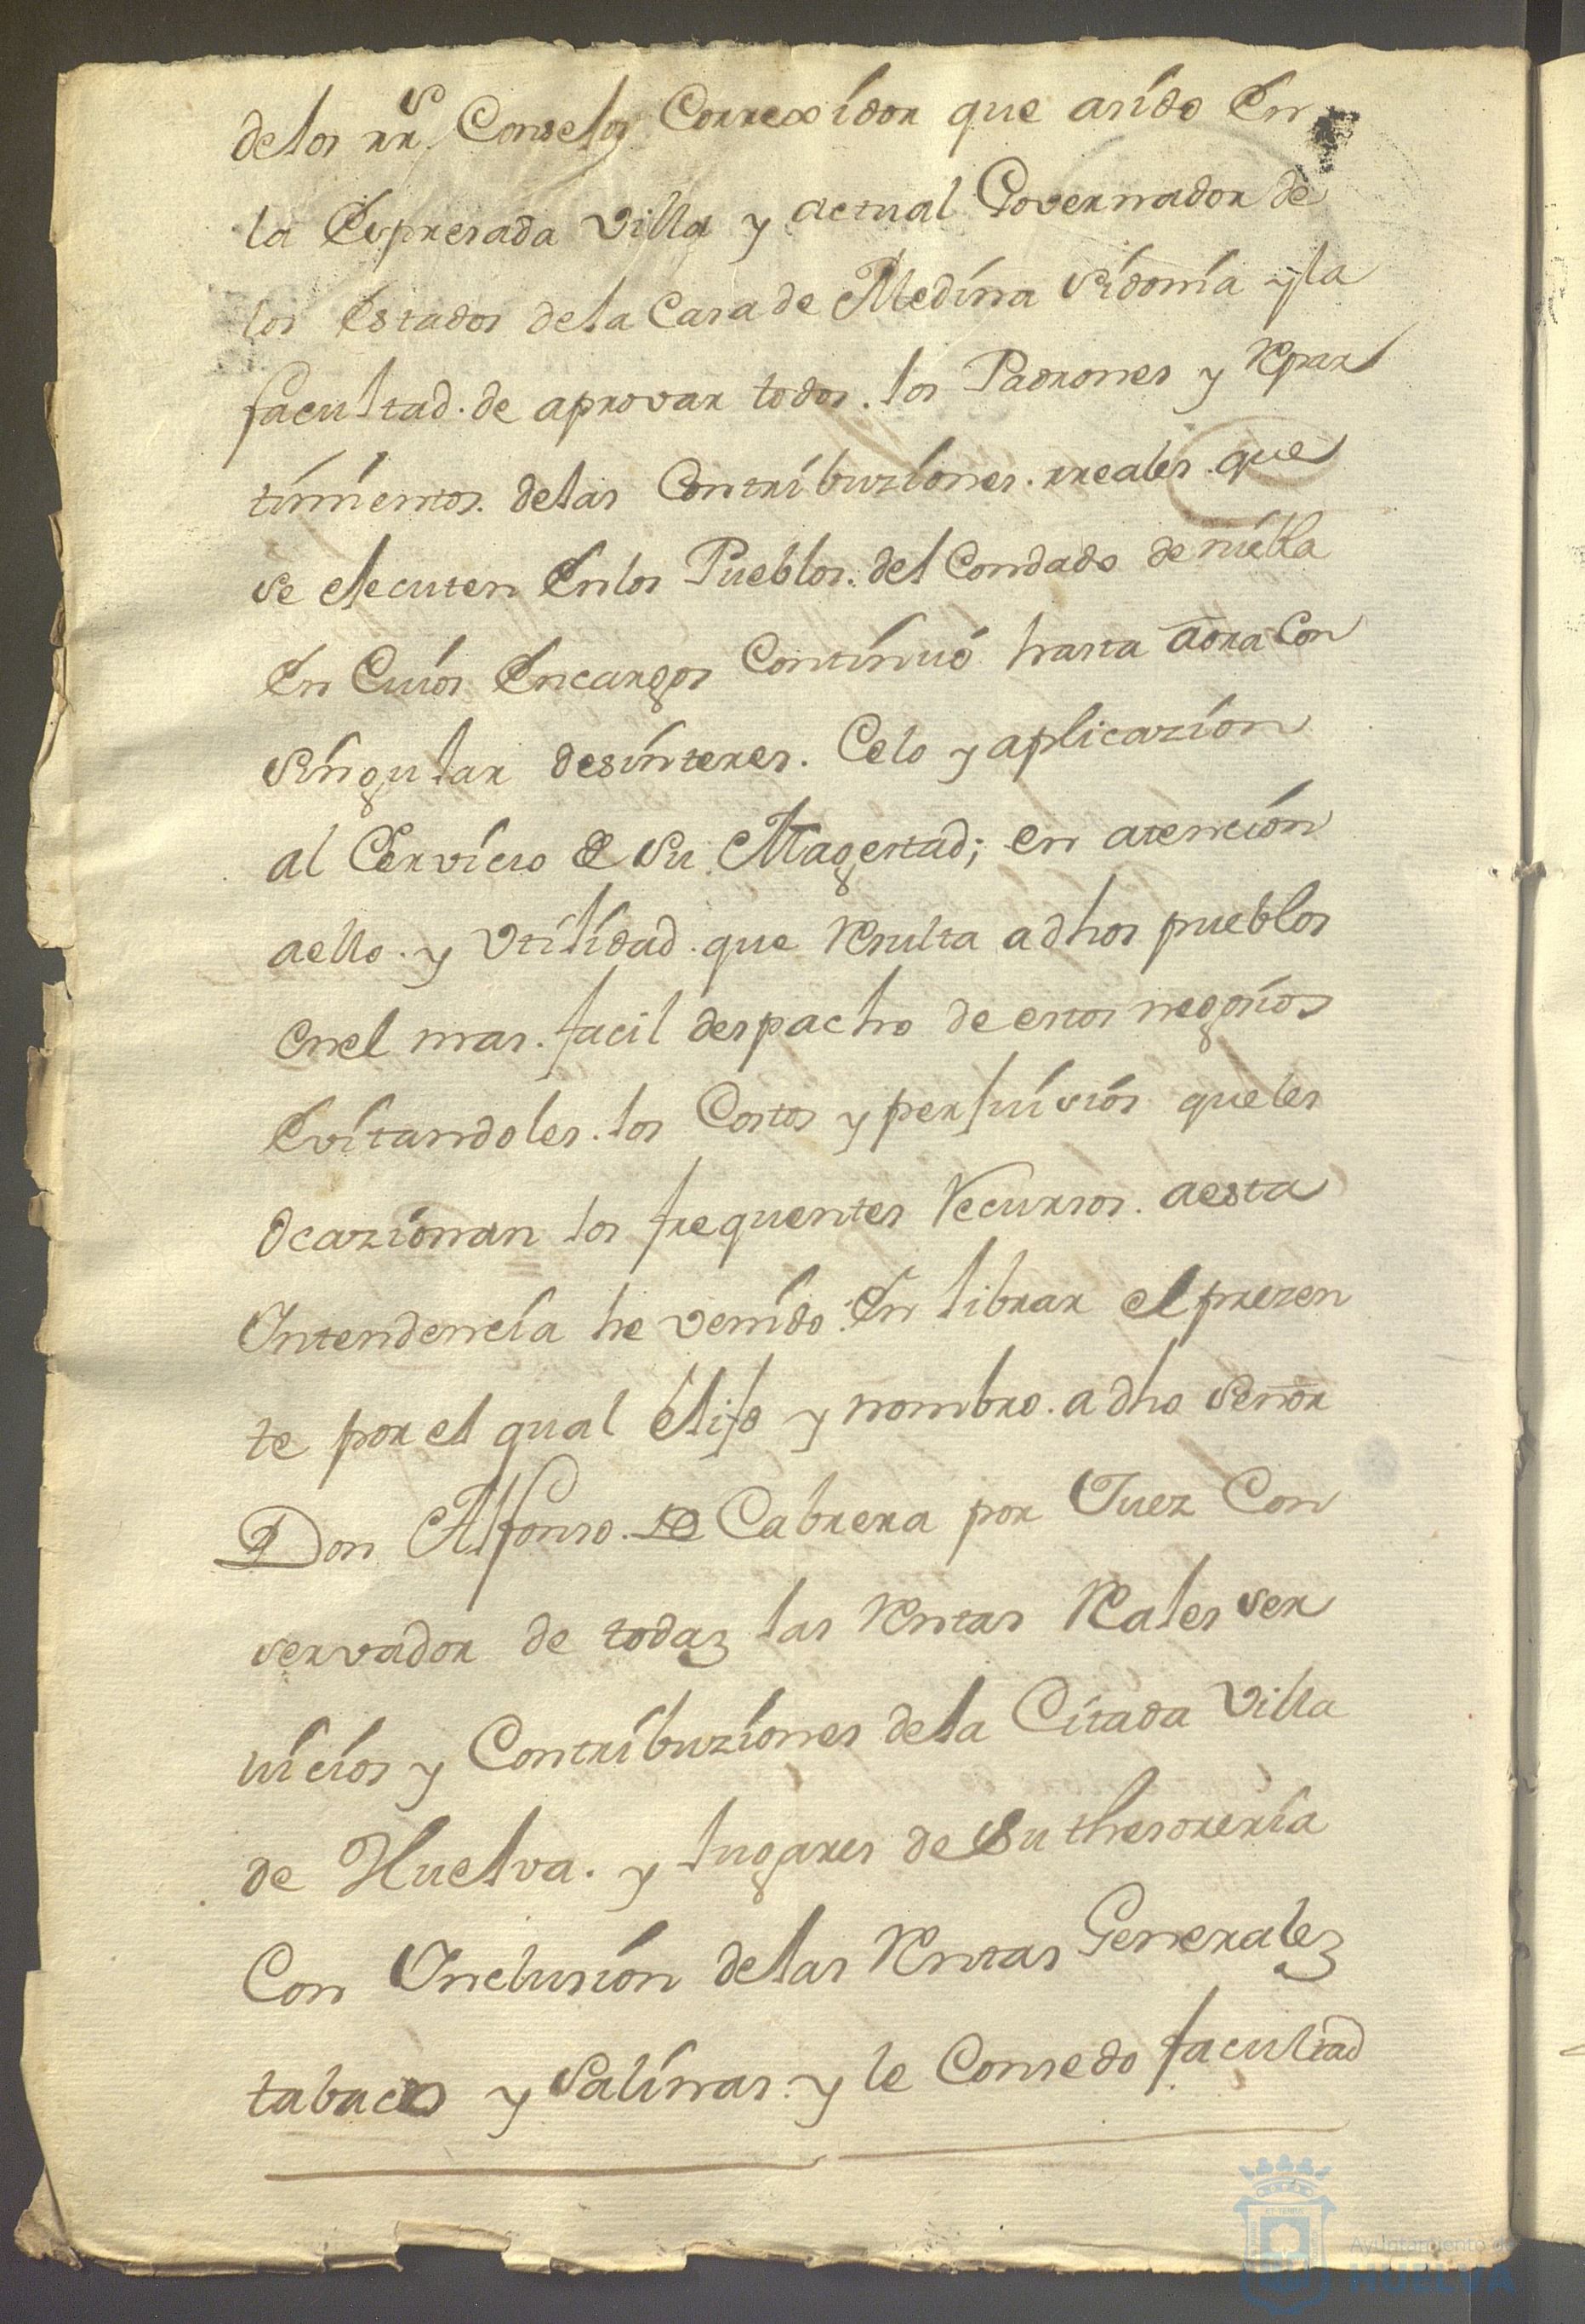 delos rr.s Consejos Correxidor que asido En
la Expresada villa y actual Governador de
los Estados dela Casa de Medina Sidonia y la
facultad de aprovar todos los Padrones y Repar
timientos delas Contribuziones rreales que
se ejecuten En los Pueblos del Condado de niebla
En Cuios Encargos Continuó hasta aora Con
Singular desinteres. Celo y aplicazion
al Cervicio de Su Magestad; en atencion
aello y Vtilidad que Resulta a dhos pueblos
en el mas facil despacho de estos negocios
Evitandoles los Costos y perjuivios queles
Ocazionan los frequentes Recursos aesta
Intendencia he venido En librar el prezen
te por el qual elijo y nombro a dho Señor
Don Alfonso de Cabrera por Juez Con
servador de todaz las Rentas Reales ser
uicios y Contribuziones dela Citada Villa
de Huelva. y lugares de Su thesoreria
Con Inclusion delas Rentas Generalez
tabacos y Salinas y le Consedo facultad
Ayuntamiento de
HUELVA